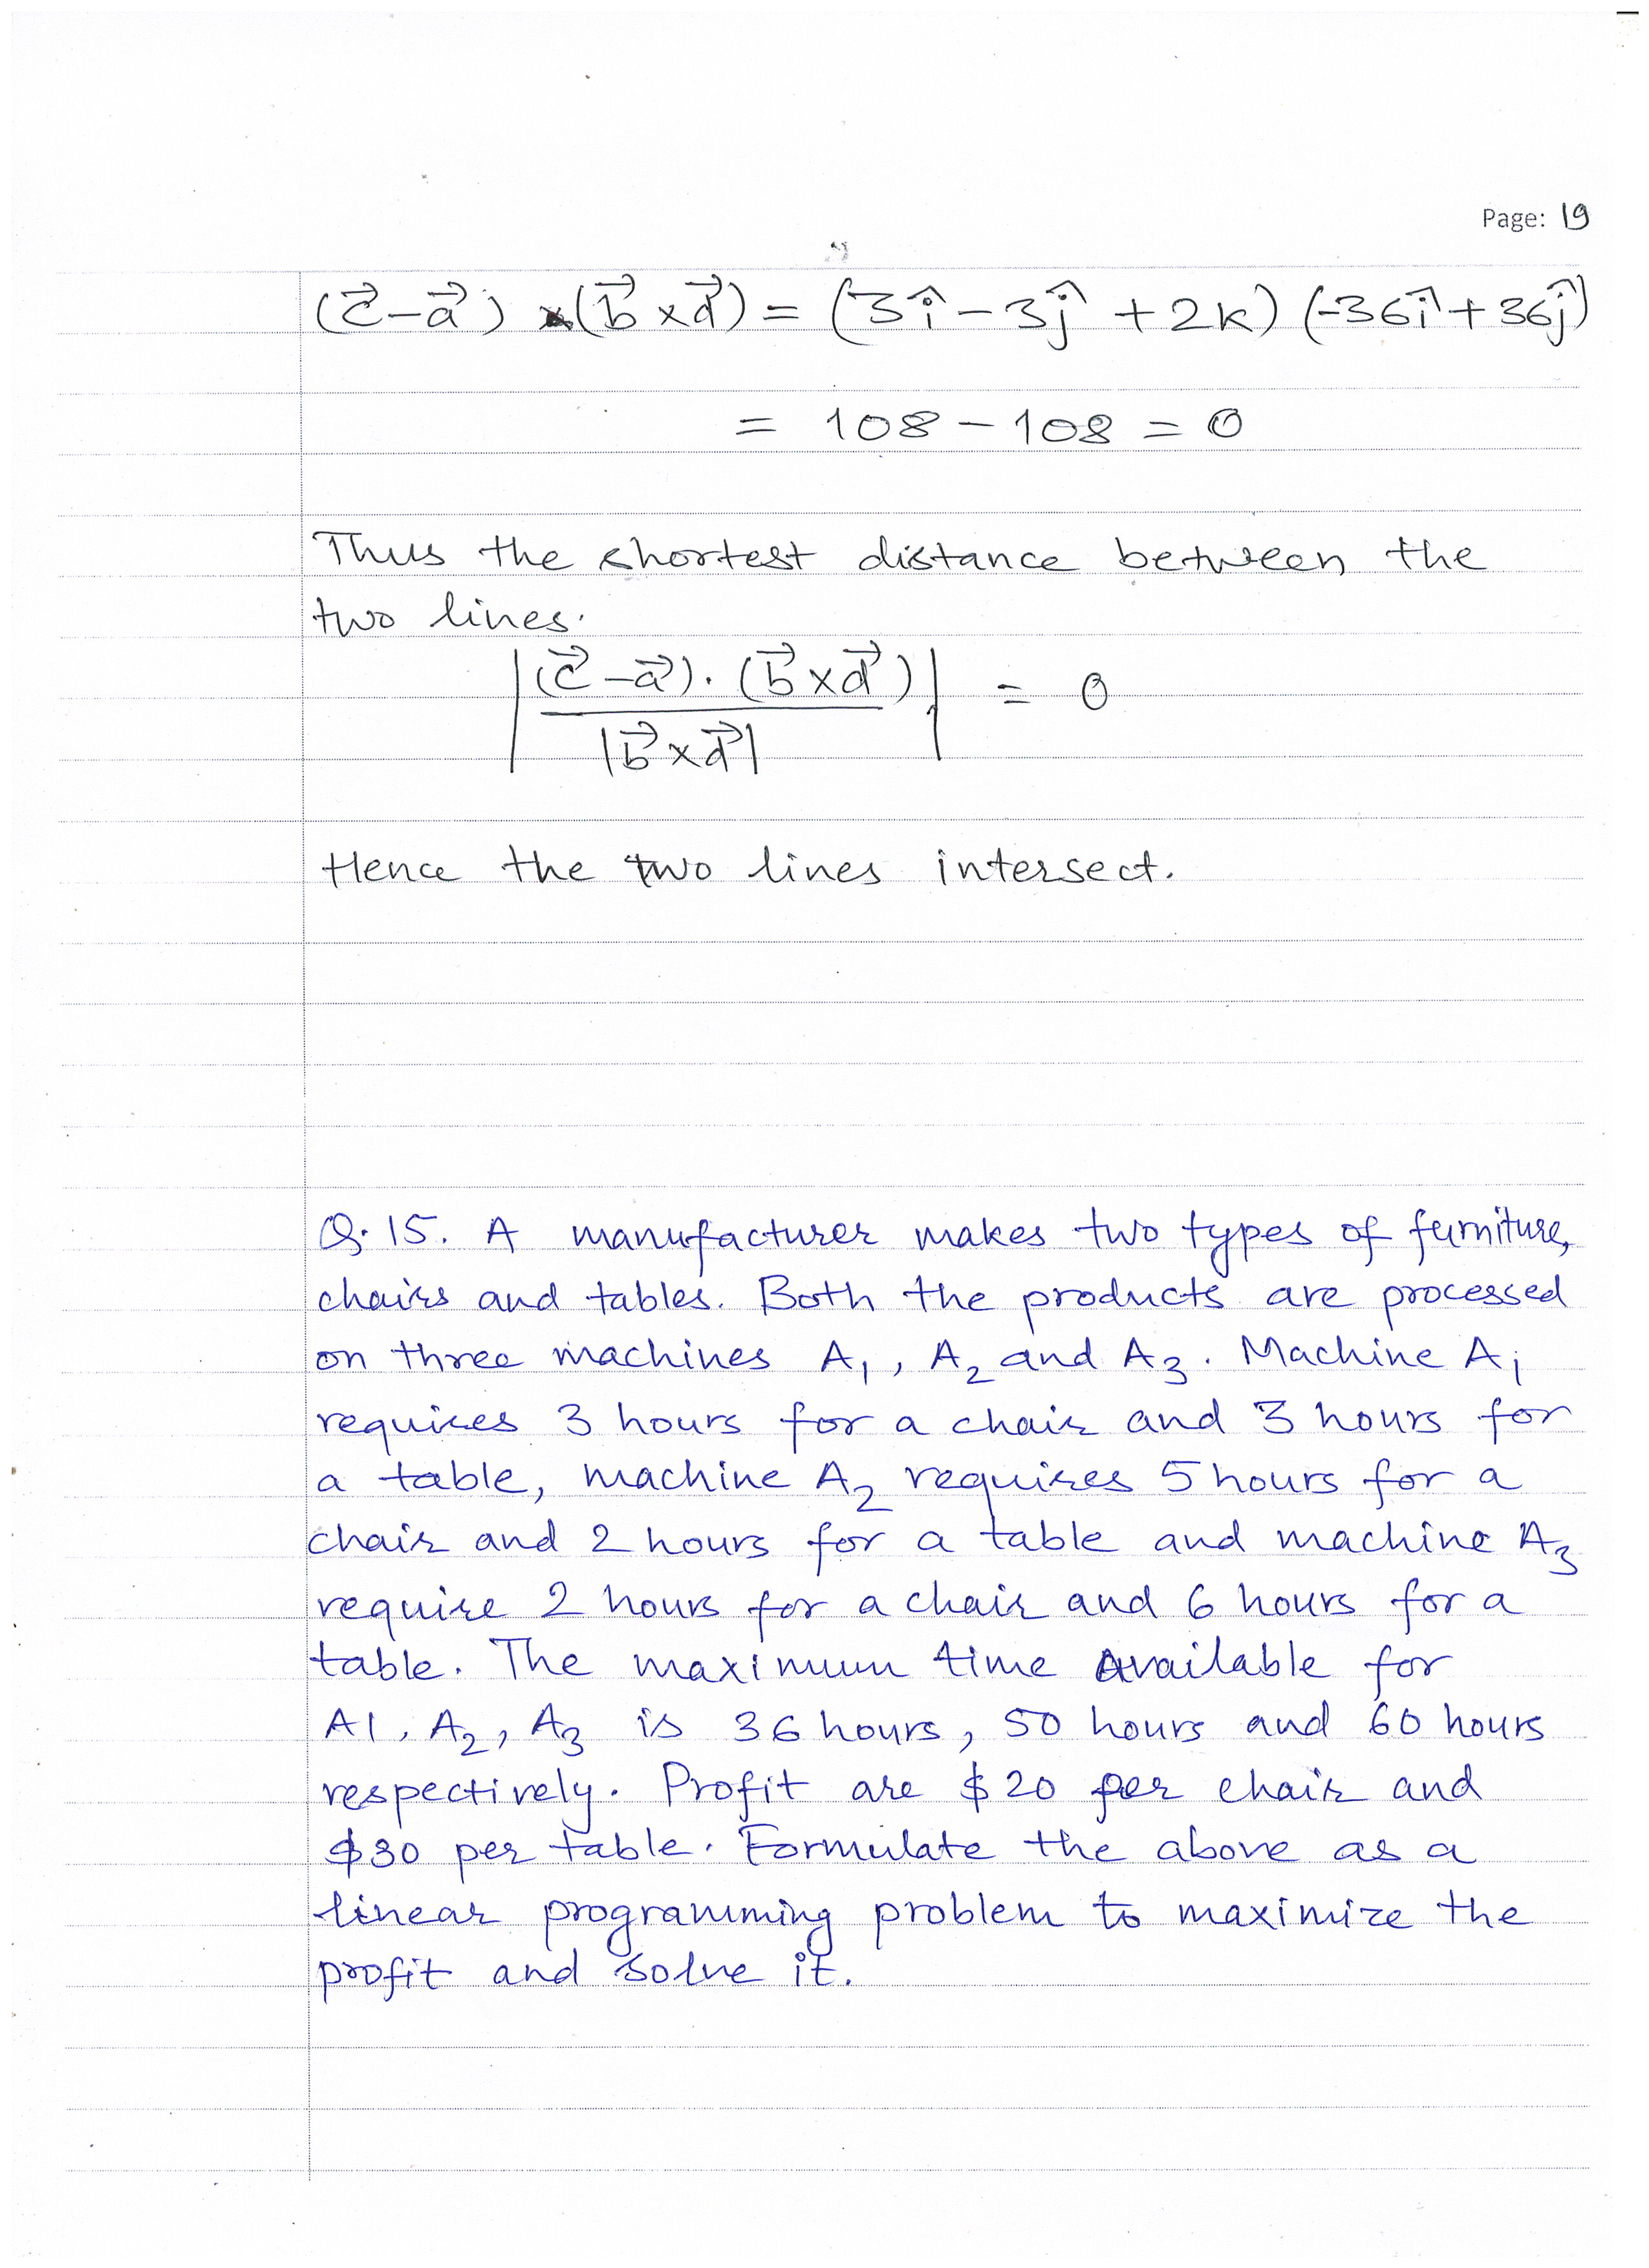 Page: 19
(c⃗-a⃗) × (b⃗ × d⃗) = (3î - 3ĵ + 2k) (-36î + 36ĵ)
= 108 - 108 = 0
Thus the shortest distance between the
two lines.
|(c⃗-a⃗). (b⃗×d⃗)| = 0
|b⃗×d⃗|
Hence the two lines intersect.
Q. 15. A manufacturer makes two types of furniture,
chairs and tables. Both the products are processed
on three machines A₁, A₂ and A₃. Machine A₁
requires 3 hours for a chair and 3 hours for
a table, machine A₂ requires 5 hours for a
chair and 2 hours for a table and machine A₃
require 2 hours for a chair and 6 hours for a
table. The maximum time available for
A1, A₂, A₃ is 36 hours, 50 hours and 60 hours
respectively. Profit are $20 per chair and
$30 per table. Formulate the above as a
linear programming problem to maximize the
profit and solve it.